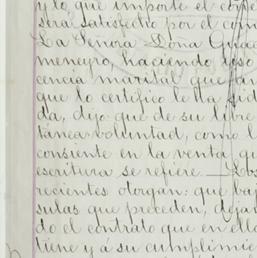 y lo que importe el
será satisfecho por el com
La Señora Doña
menegro, haciendo uso
cencia marital que
que lo certifico le ha sid
da, dijo que de su libre
tánea voluntad, como l
consiente en la venta qu
escritura se refiere — Los
recientes otorgan: que baj
sulas que preceden, dejan
do el contrato que en ella
tiene y á su cumplimie